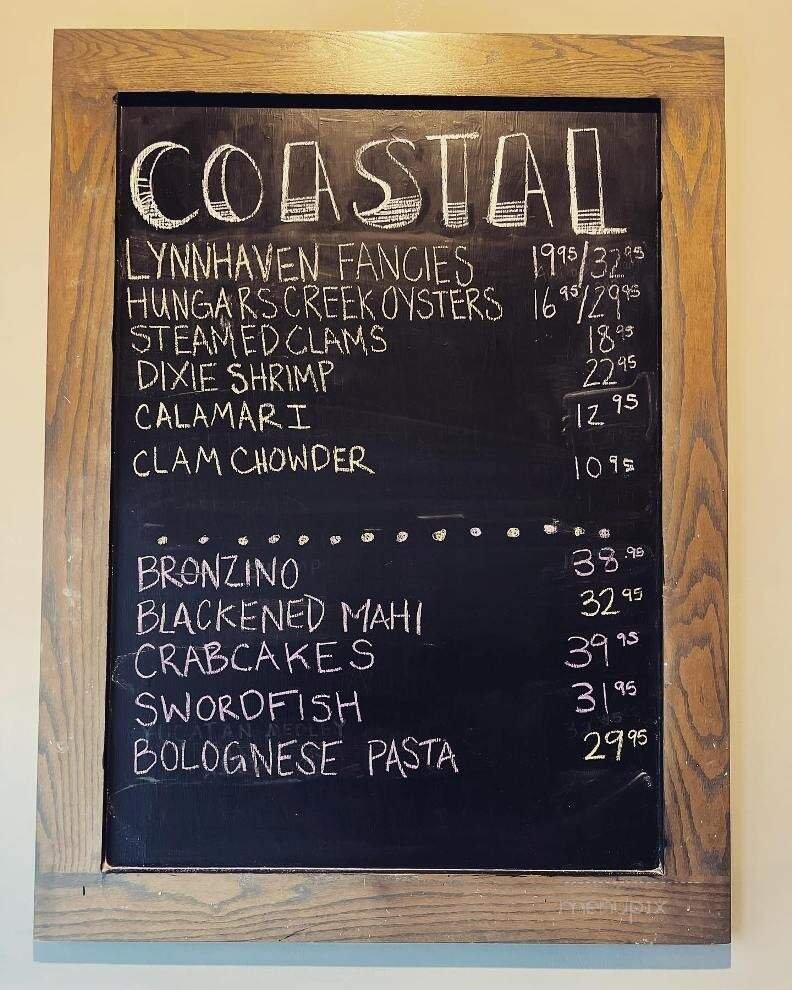 COASTAL
LYNNHAVEN FANCIES 19.95/32.95
HUNGARS CREEK OYSTERS 16.95/29.95
STEAMED CLAMS 18.95
DIXIE SHRIMP 22.95
CALAMARI 12.95
CLAM CHOWDER 10.95
BRONZINO 38.95
BLACKENED MAHI 32.95
CRABCAKES 39.95
SWORDFISH 31.95
BOLOGNESE PASTA 29.95
menupix